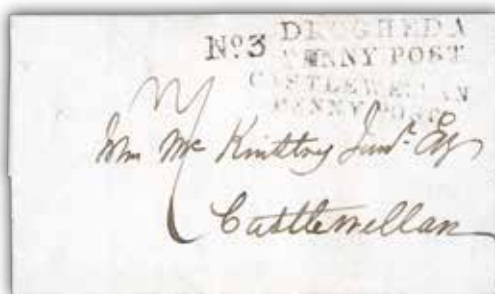 DROGHEDA
No 3 PENNY POST
CASTLEWELLAN
PENNY POST
Wm Mc Junr. Esq
Castlewellan